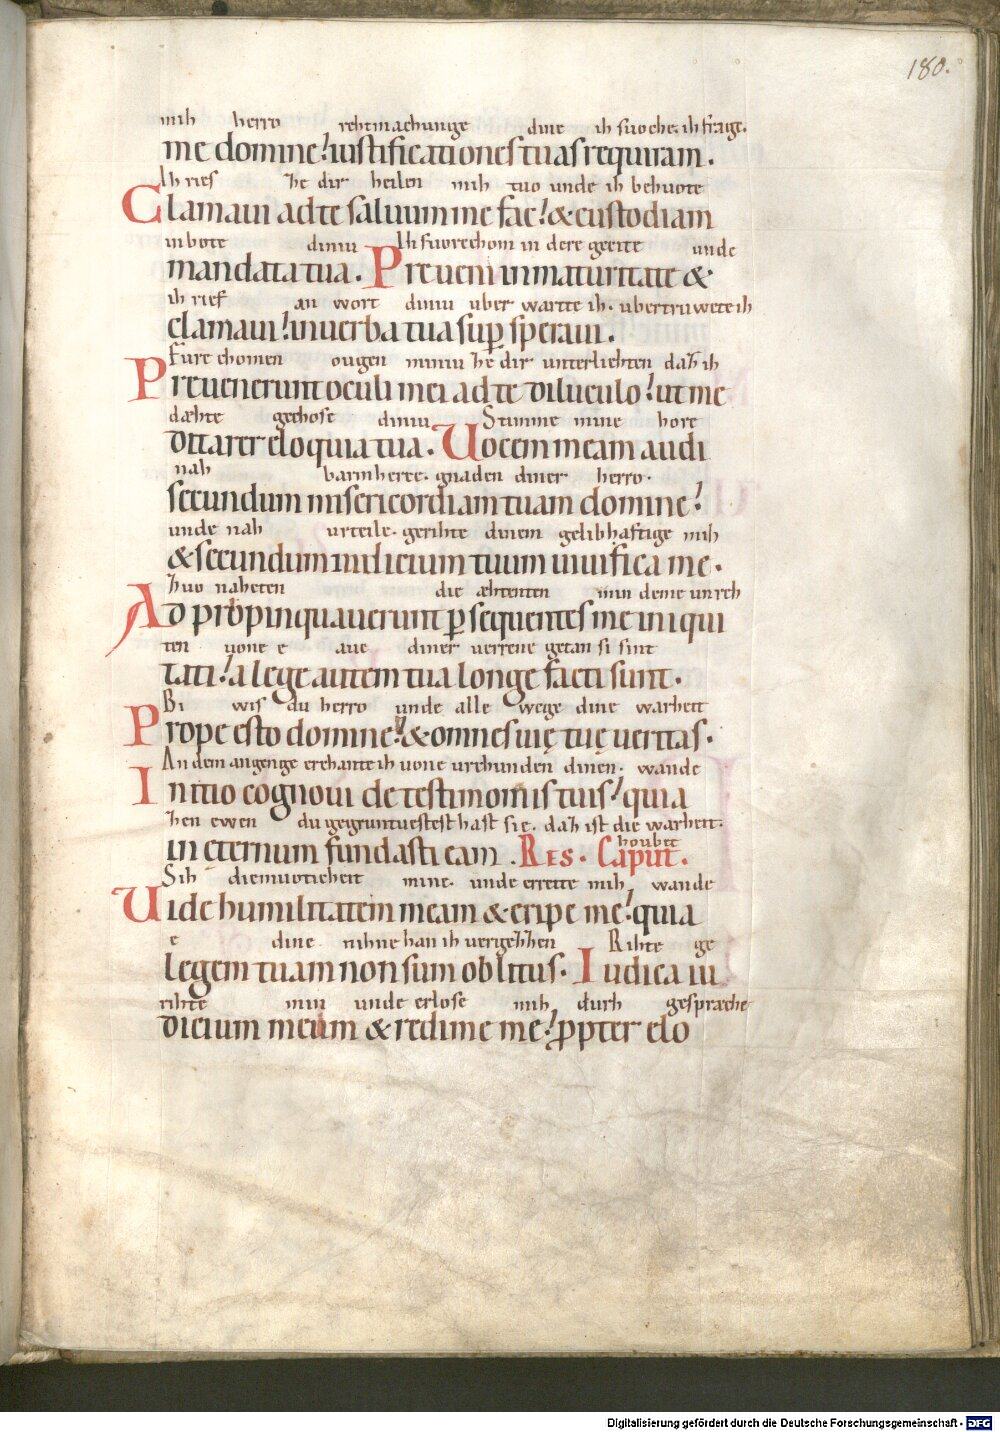 180.
mih herro rehtmachunge dine ih suoche. ih frage.
me domine! iustificationes tuas requiram.
Ih rief ze dir heilen mih tuo unde ih behuote
Clamaui ad te saluum me fac! & custodiam
inbote diniu Ih furechom in dere zerite unde
mandata tua. Preueni in maturitate &
ih rief an wort diniu uber wartte ih. ubertruwete ih
clamaui! in uerba tua sup speraui.
Fure chomen ougen miniu ze dir unterliehten daz ih
Preuenerunt oculi mei ad te diluculo! ut me
dæhte gechose diniu Stimme mine hore
ditarer eloquia tua. Uocem meam audi
nah barmherte. gnaden diner herro.
secundum misericordiam tuam domine!
unde nah urteile. gerihte dinem gelibhaftige mih
& secundum iudicium tuum uiuifica me.
Zuo naheten die æhtenten min deme unreh
Ad propinquauerunt p sequentes me iniqui
ten uone e aue diner uerrene getan si sint
tati! a lege autem tua longe facti sunt.
Bi wis du herro unde alle wege dine warheit
Prope esto domine! & omnes uię tuę ueritas.
An dem angenge erchante ih uone urchunden dinen. wande
Initio cognoui de testimoniis tuis! quia
zen ewen du gegruntuestest hast sie. daz ist die warheit.
in ęternum fundasti eam. Res. Caput.
houbet
Sih diemuoticheit mine. unde errette mih, wande
Uide humilitatem meam & eripe me! quia
e dine nihne han ih uergezzen Rihte ge
legem tuam non sum oblitus. Iudica iu
rihte min unde erlose mih durh gespræche
dicium meum & redime me! ppter elo
Digitalisierung gefördert durch die Deutsche Forschungsgemeinschaft - DFG